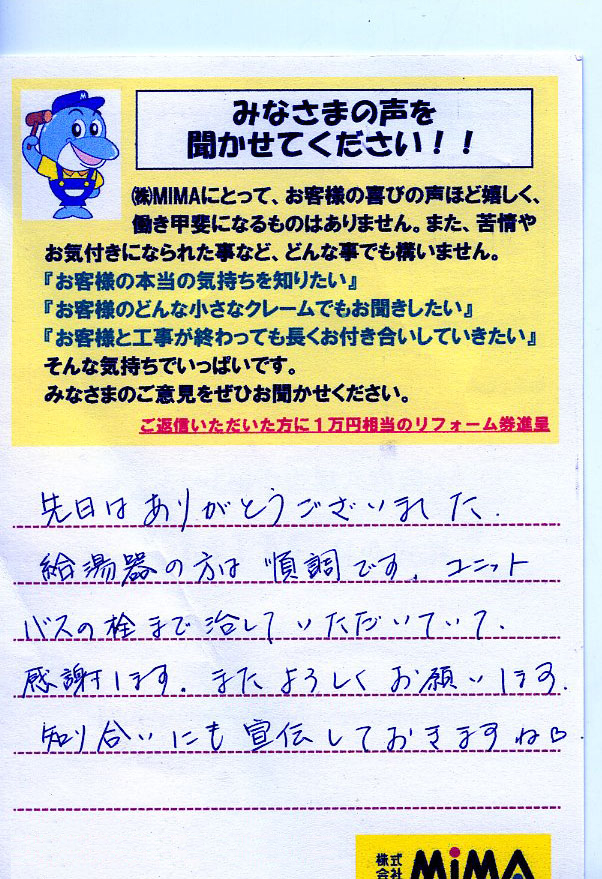 みなさまの声を
聞かせてください！！
㈱MIMAにとって、お客様の喜びの声ほど嬉しく、
働き甲斐になるものはありません。また、苦情や
お気付きになられた事など、どんな事でも構いません。
『お客様の本当の気持ちを知りたい』
『お客様のどんな小さなクレームでもお聞きしたい』
『お客様と工事が終わっても長くお付き合いしていきたい』
そんな気持ちでいっぱいです。
みなさまのご意見をぜひお聞かせください。
ご返信いただいた方に１万円相当のリフォーム券進呈
先日はありがとうございました.
給湯器の方は順調です. ユニット
バスの栓まで治していただいていて.
感謝します. またよろしくお願いします.
知り合いにも宣伝しておきますね♡.
株式会社 MiMA